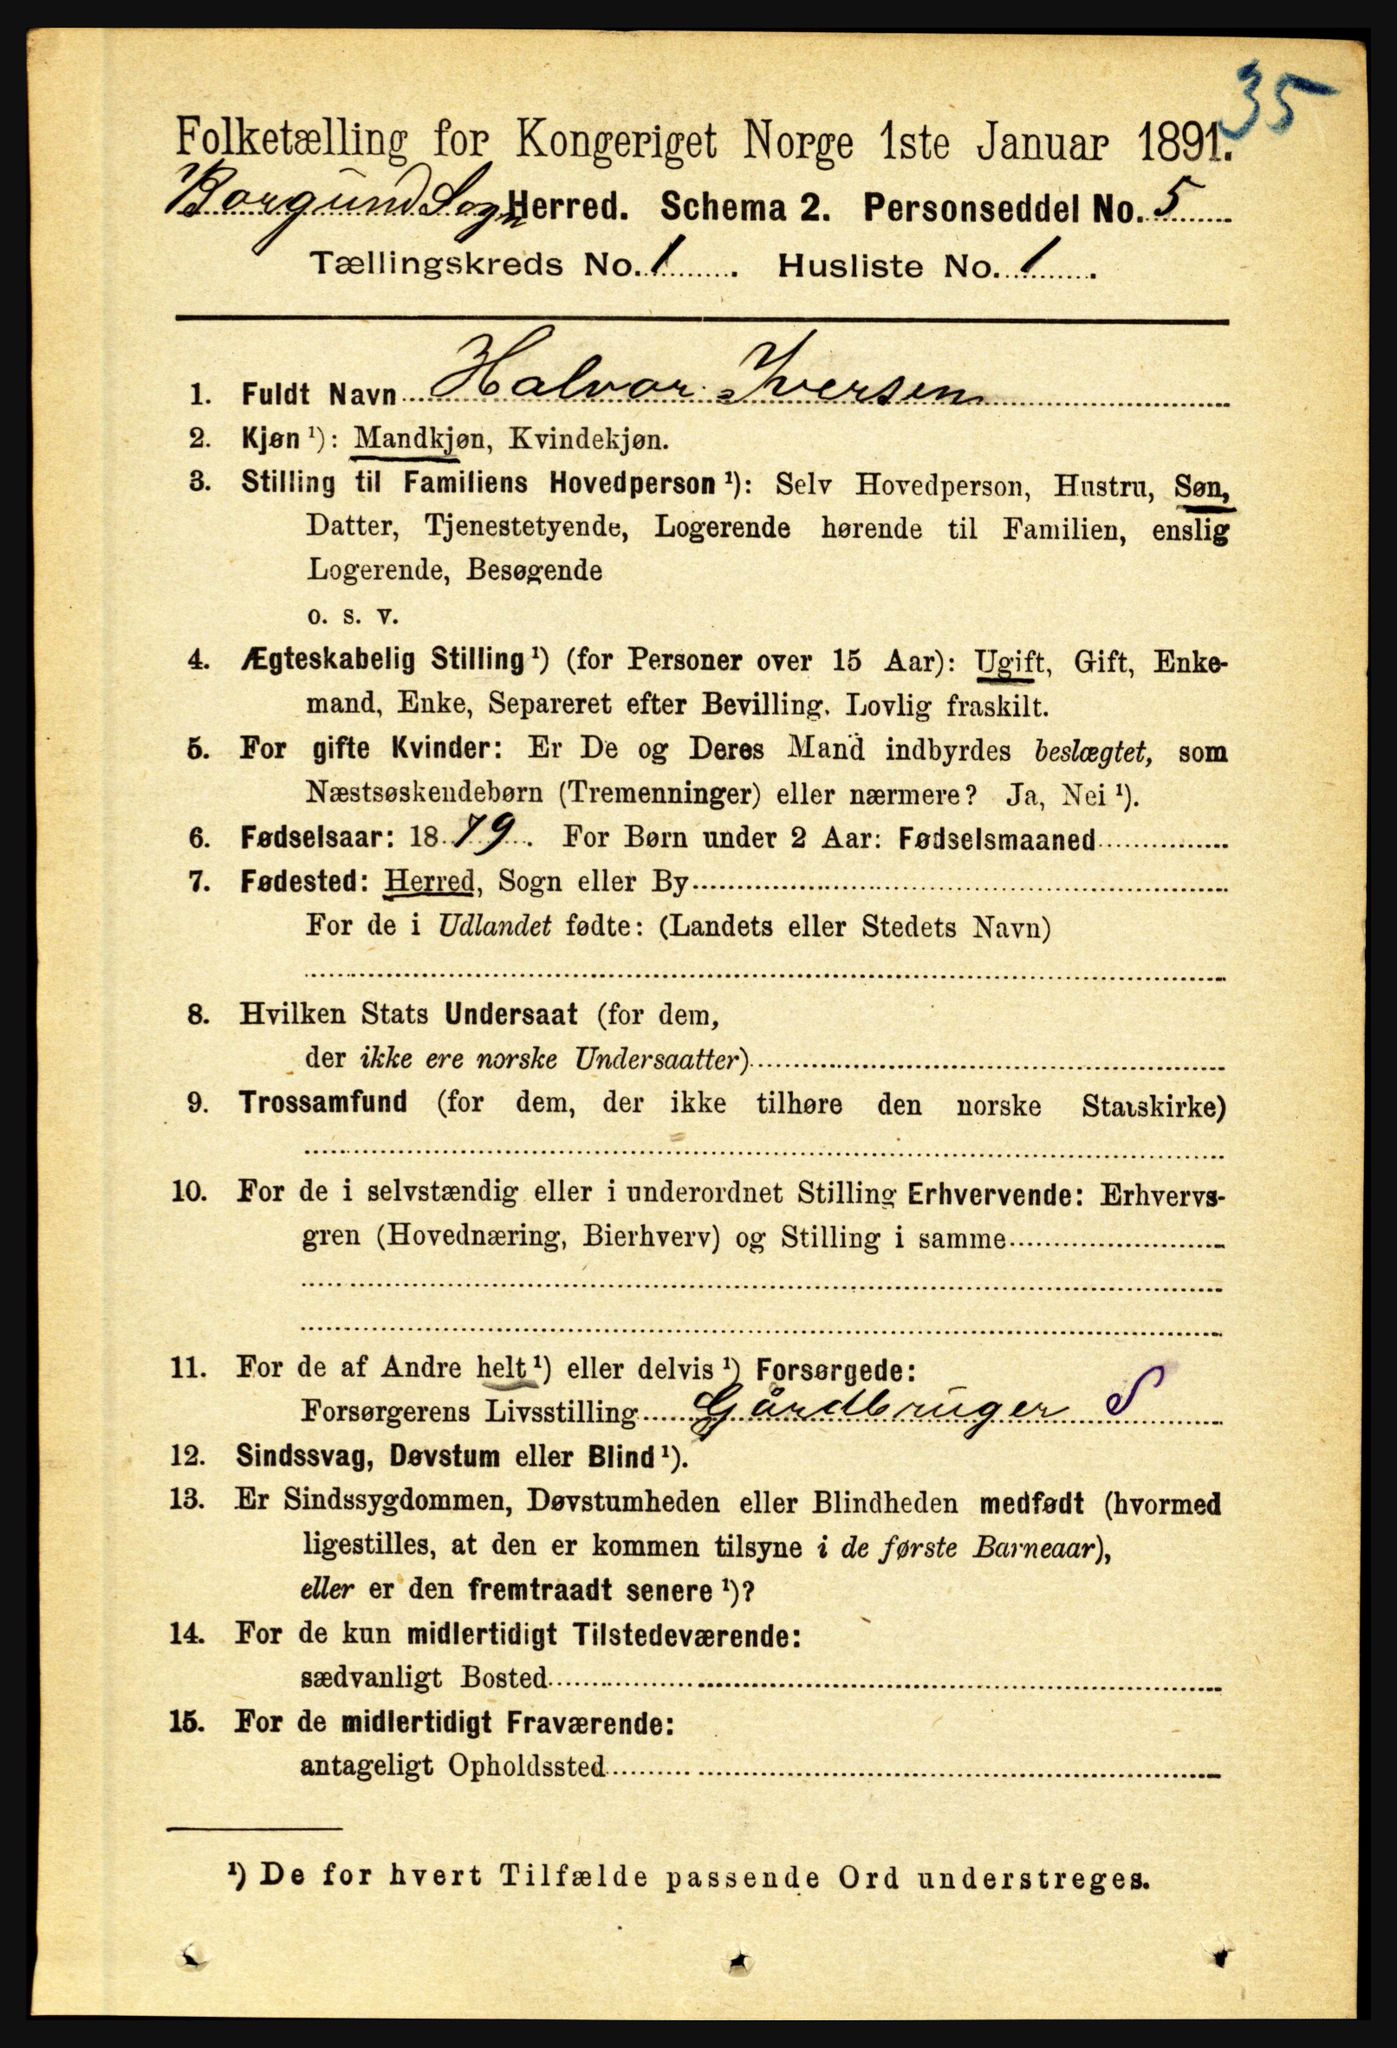 35
Folketælling for Kongeriget Norge 1ste Januar 1891.
Borgund Sogn Herred. Schema 2. Personseddel No. 5
Tællingskreds No. 1. Husliste No. 1.
1. Fuldt Navn Halvor Iversen
2. Kjøn ¹): Mandkjøn, Kvindekjøn.
3. Stilling til Familiens Hovedperson ¹): Selv Hovedperson, Hustru, Søn,
Datter, Tjenestetyende, Logerende hørende til Familien, enslig
Logerende, Besøgende
o. s. v.
4. Ægteskabelig Stilling ¹) (for Personer over 15 Aar): Ugift, Gift, Enke-
mand, Enke, Separeret efter Bevilling. Lovlig fraskilt.
5. For gifte Kvinder: Er De og Deres Mand indbyrdes beslægtet, som
Næstsøskendebørn (Tremenninger) eller nærmere? Ja, Nei ¹).
6. Fødselsaar: 1879. For Børn under 2 Aar: Fødselsmaaned
7. Fødested: Herred, Sogn eller By
For de i Udlandet fødte: (Landets eller Stedets Navn)
8. Hvilken Stats Undersaat (for dem,
der ikke ere norske Undersaatter)
9. Trossamfund (for dem, der ikke tilhøre den norske Statskirke)
10. For de i selvstændig eller i underordnet Stilling Erhvervende: Erhvervs-
gren (Hovednæring, Bierhverv) og Stilling i samme
11. For de af Andre helt ¹) eller delvis ¹) Forsørgede:
Forsørgerens Livsstilling Gårdbruger S
12. Sindssvag, Døvstum eller Blind ¹).
13. Er Sindssygdommen, Døvstumheden eller Blindheden medfødt (hvormed
ligestilles, at den er kommen tilsyne i de første Barneaar),
eller er den fremtraadt senere ¹)?
14. For de kun midlertidigt Tilstedeværende:
sædvanligt Bosted
15. For de midlertidigt Fraværende:
antageligt Opholdssted
¹) De for hvert Tilfælde passende Ord understreges.